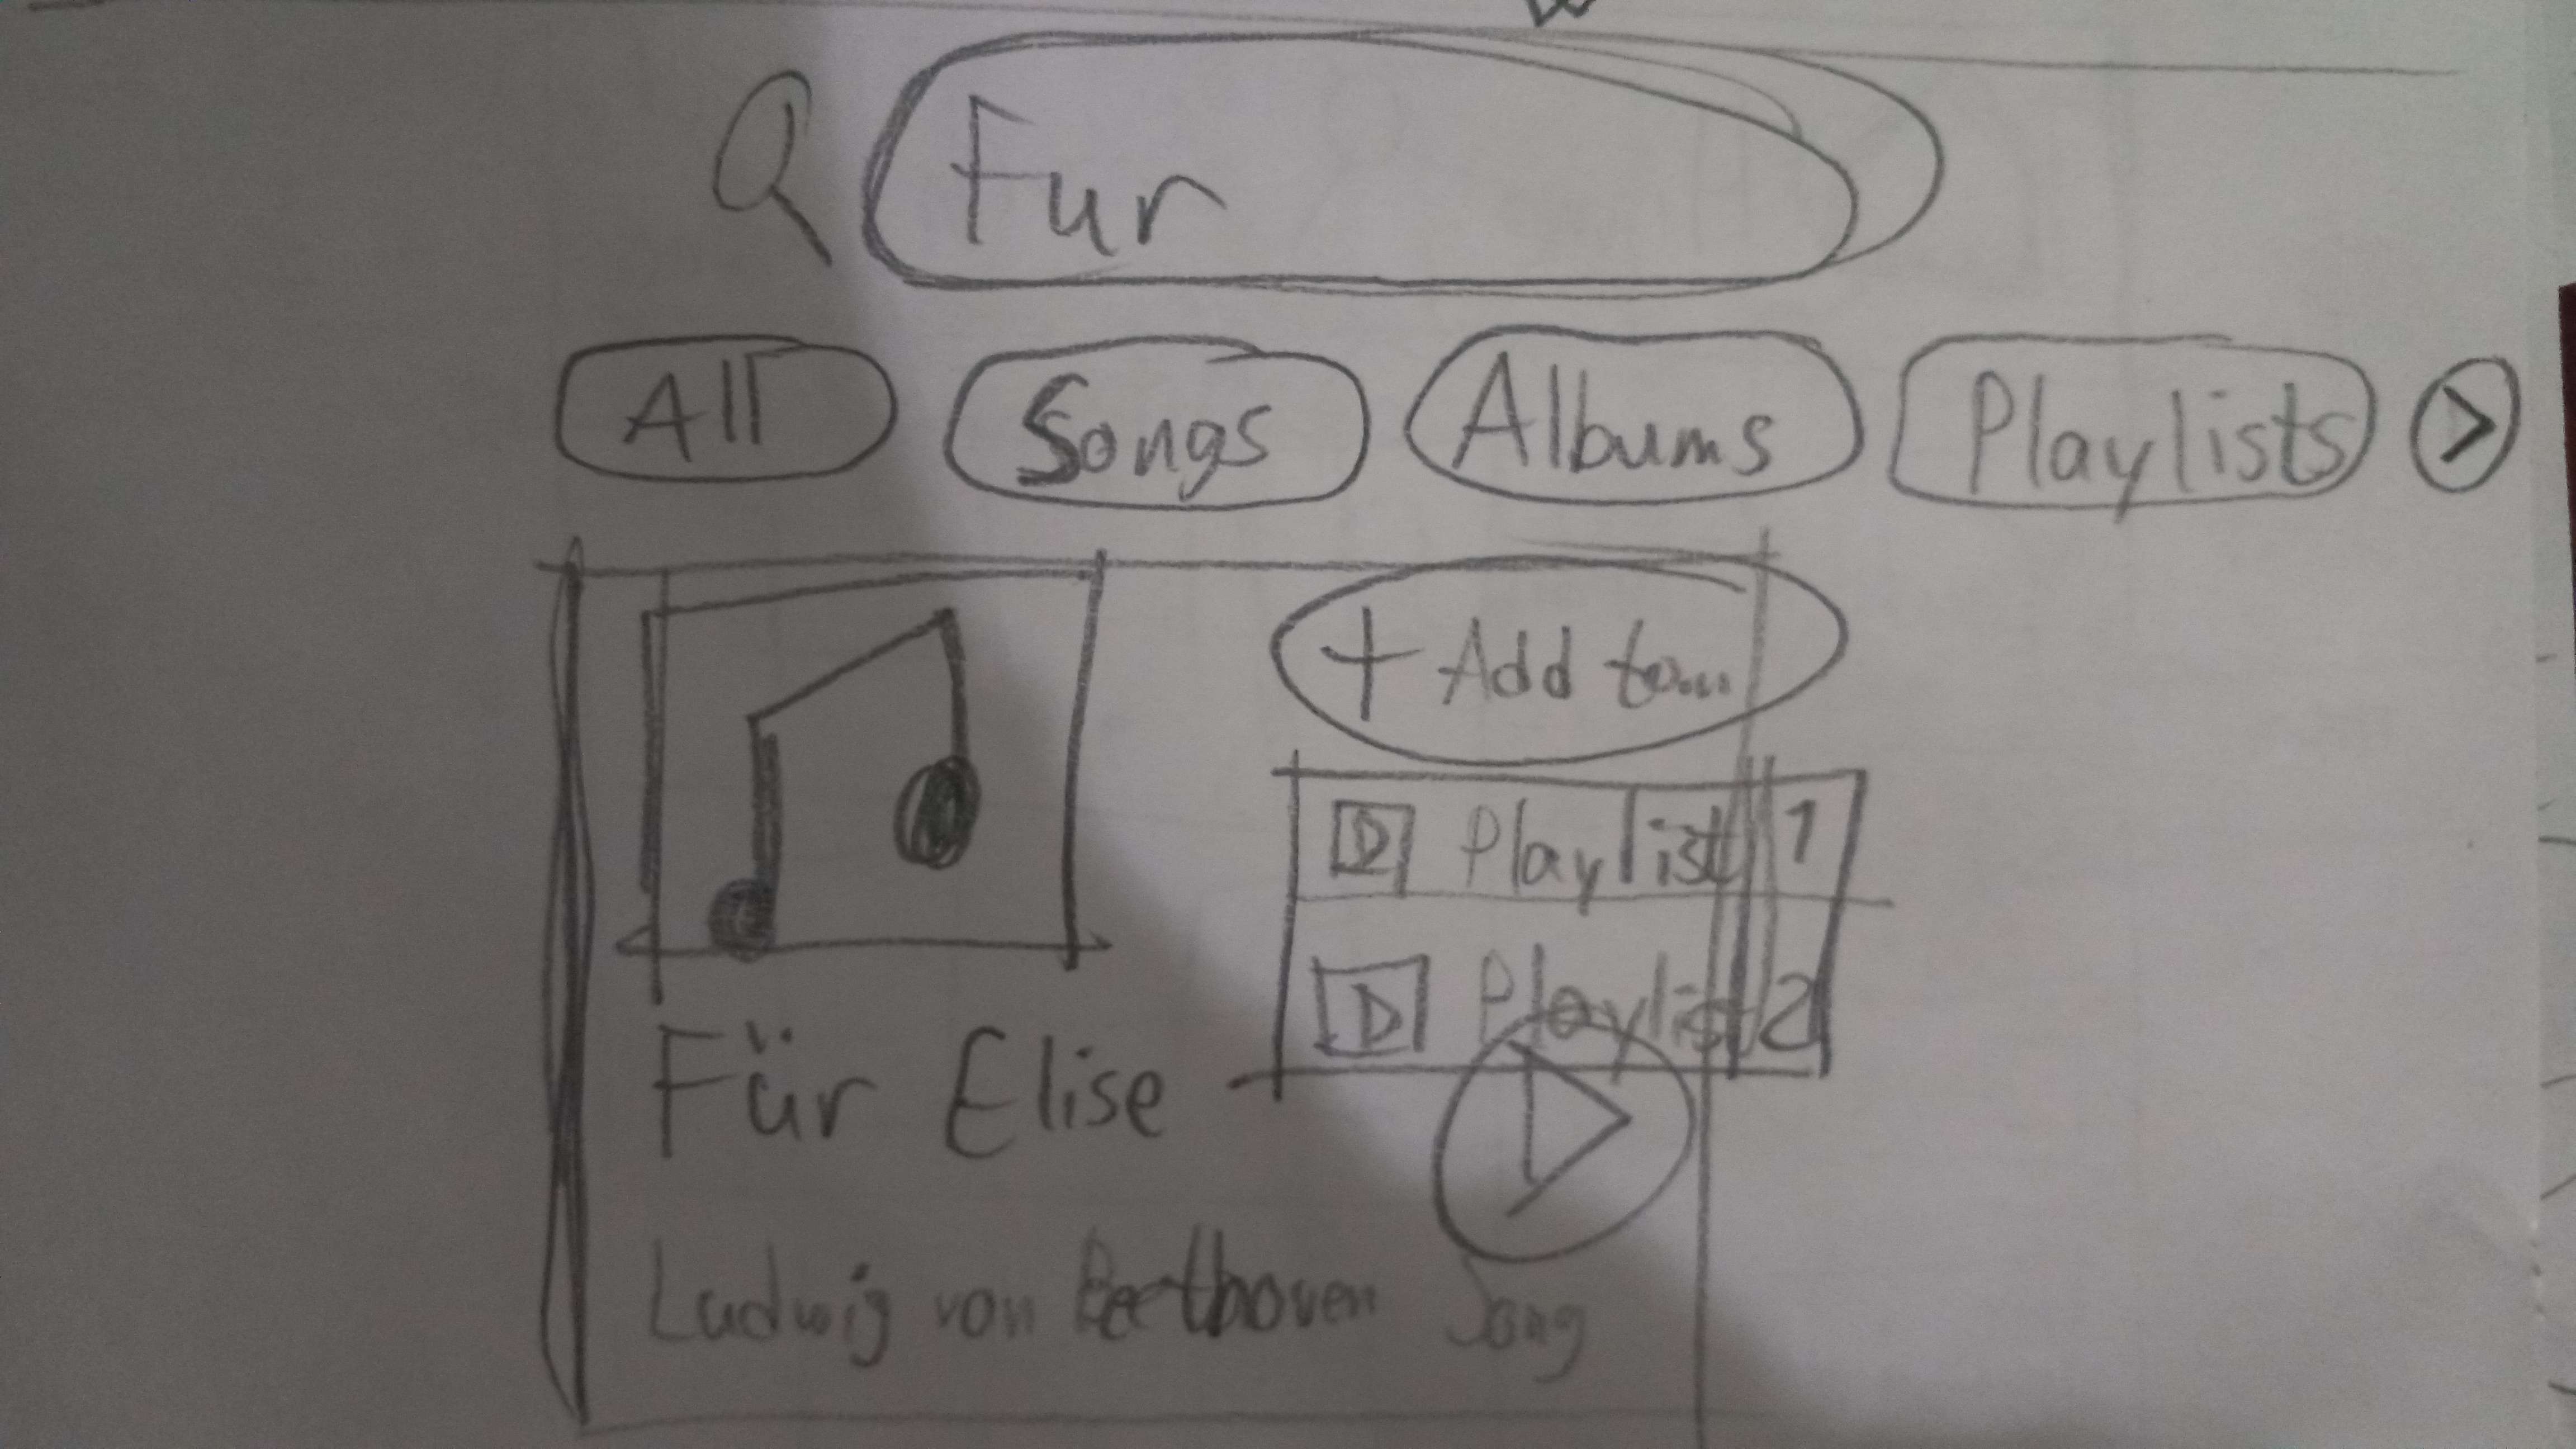 Fur
All Songs Albums Playlists >
+ Add to...
Playlist 1
Playlist 2
Für Elise
Ludwig von Beethoven Song